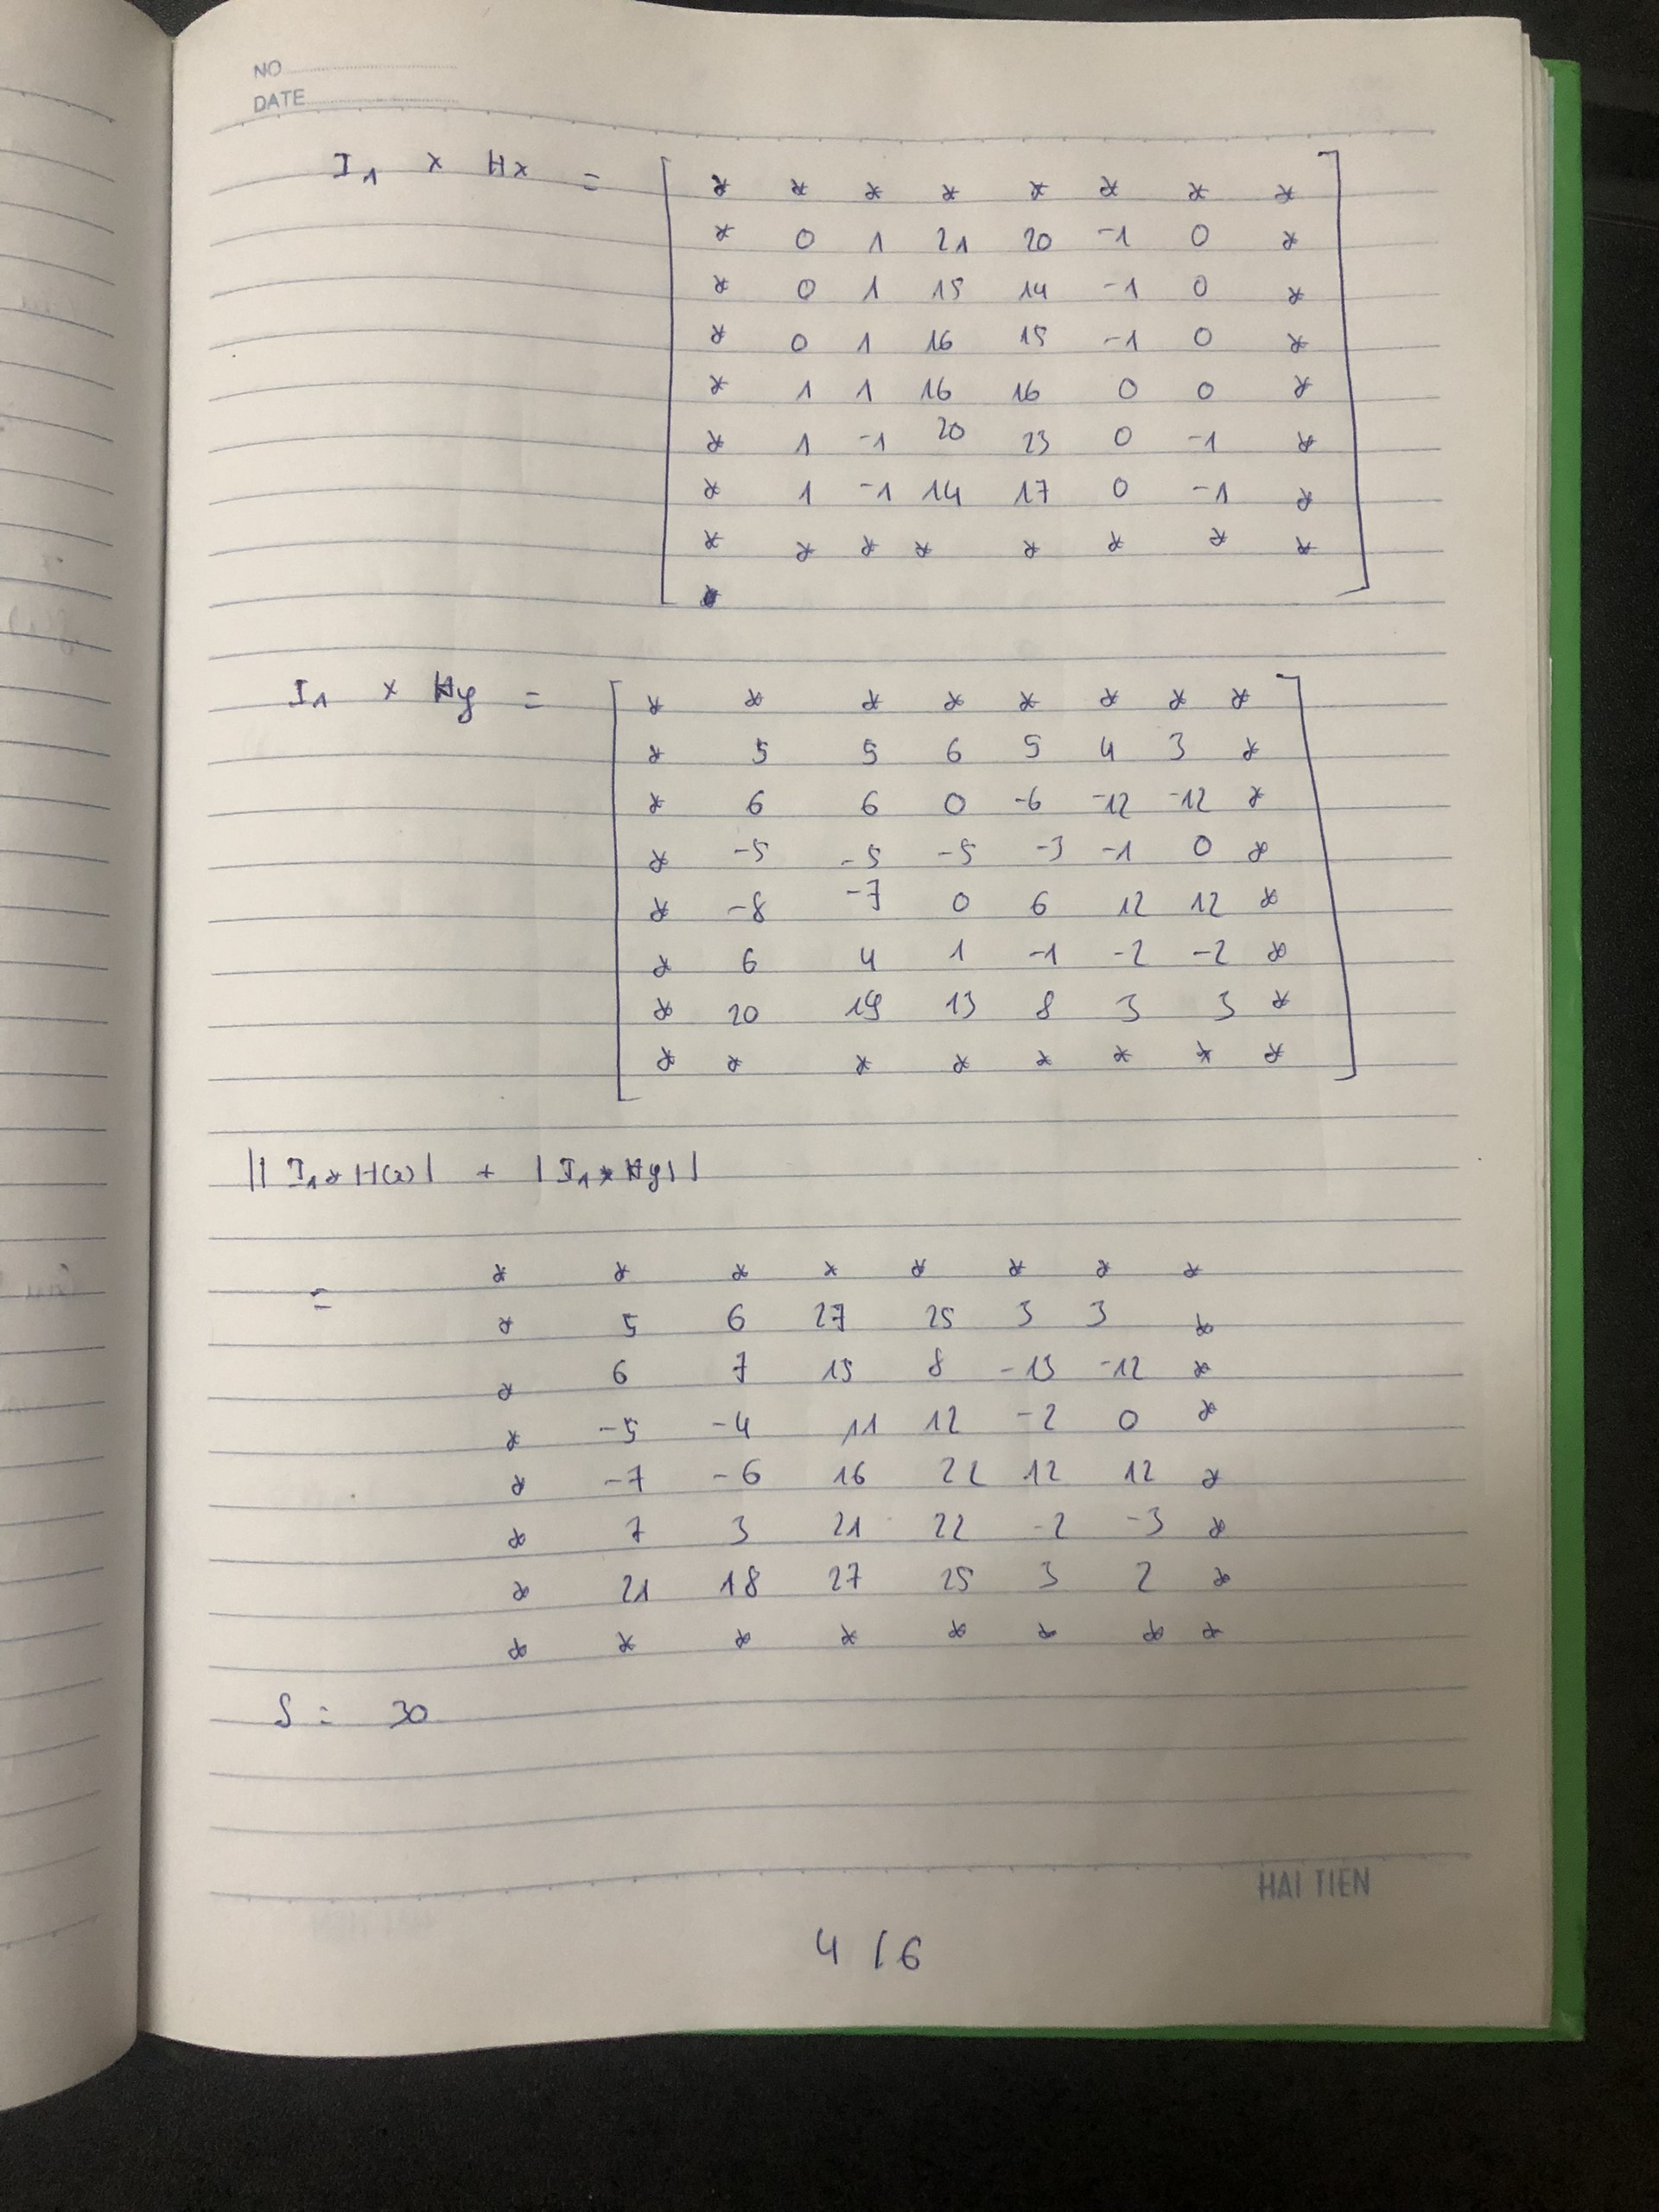 NO
DATE
I₁ x Hx =
* * * * * * * *
* 0 1 21 20 -1 0 *
* 0 1 15 14 -1 0 *
* 0 1 16 15 -1 0 *
* 1 1 16 16 0 0 *
* 1 -1 20 23 0 -1 *
* 1 -1 14 17 0 -1 *
* * * * * * * *
I₁ x Hy =
* * * * * * * *
* 5 5 6 5 4 3 *
* 6 6 0 -6 -12 -12 *
* -5 -5 -5 -3 -1 0 *
* -8 -7 0 6 12 12 *
* 6 4 1 -1 -2 -2 *
* 20 19 13 8 3 3 *
* * * * * * * *
|| I₁ * H(x) | + | I₁ * Hy | |
=
* * * * * * * *
* 5 6 27 25 3 3 *
* 6 7 15 8 -13 -12 *
* -5 -4 11 12 -2 0 *
* -7 -6 16 22 12 12 *
* 7 3 21 22 -2 -3 *
* 21 18 27 25 3 2 *
* * * * * * * *
S = 30
HAI TIEN
4 / 6